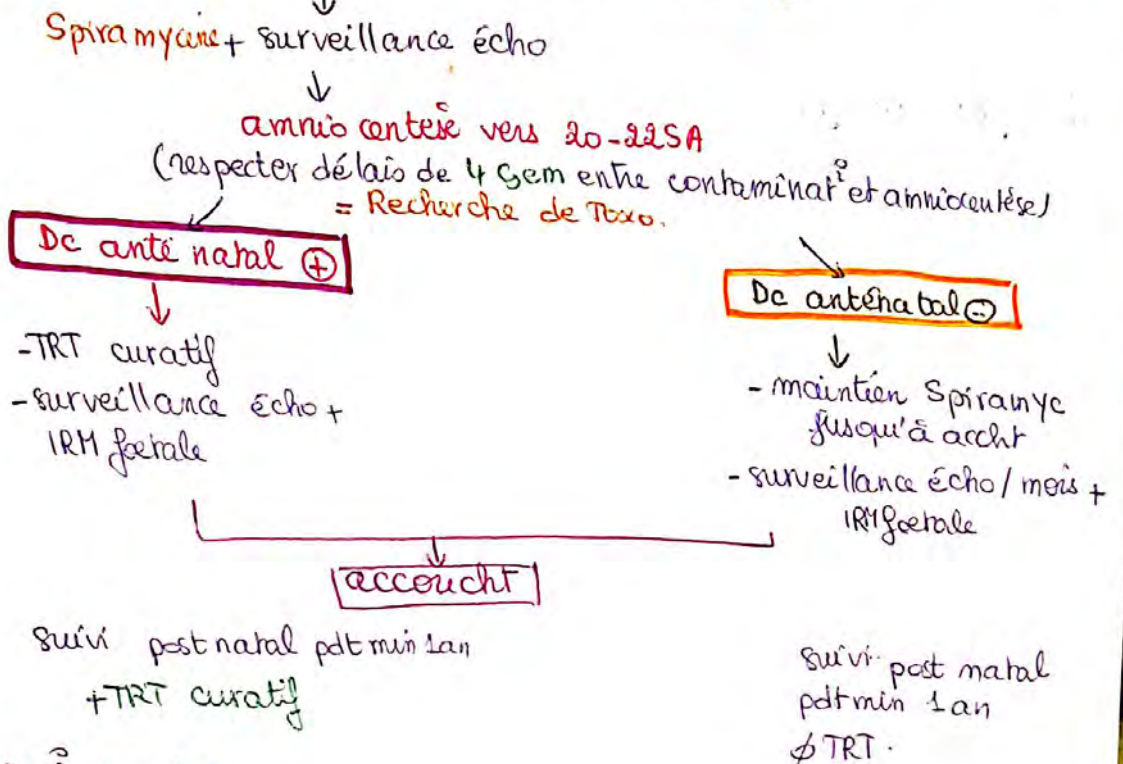 Spiramycine + surveillance écho
↓
amniocentèse vers 20-22SA
(respecter délais de 4 sem entre contaminat° et amniocentèse)
= Recherche de Toxo.
Dc anté natal ⊕
Dc anténatal ⊖
-TRT curatif
-surveillance écho +
IRM fœtale
- maintien Spiramyc
jusqu'à accht
- surveillance écho / mois +
IRM fœtale
accoucht
suivi post natal pdt min 1an
+TRT curatif
suivi post natal
pdt min 1an
∅ TRT.